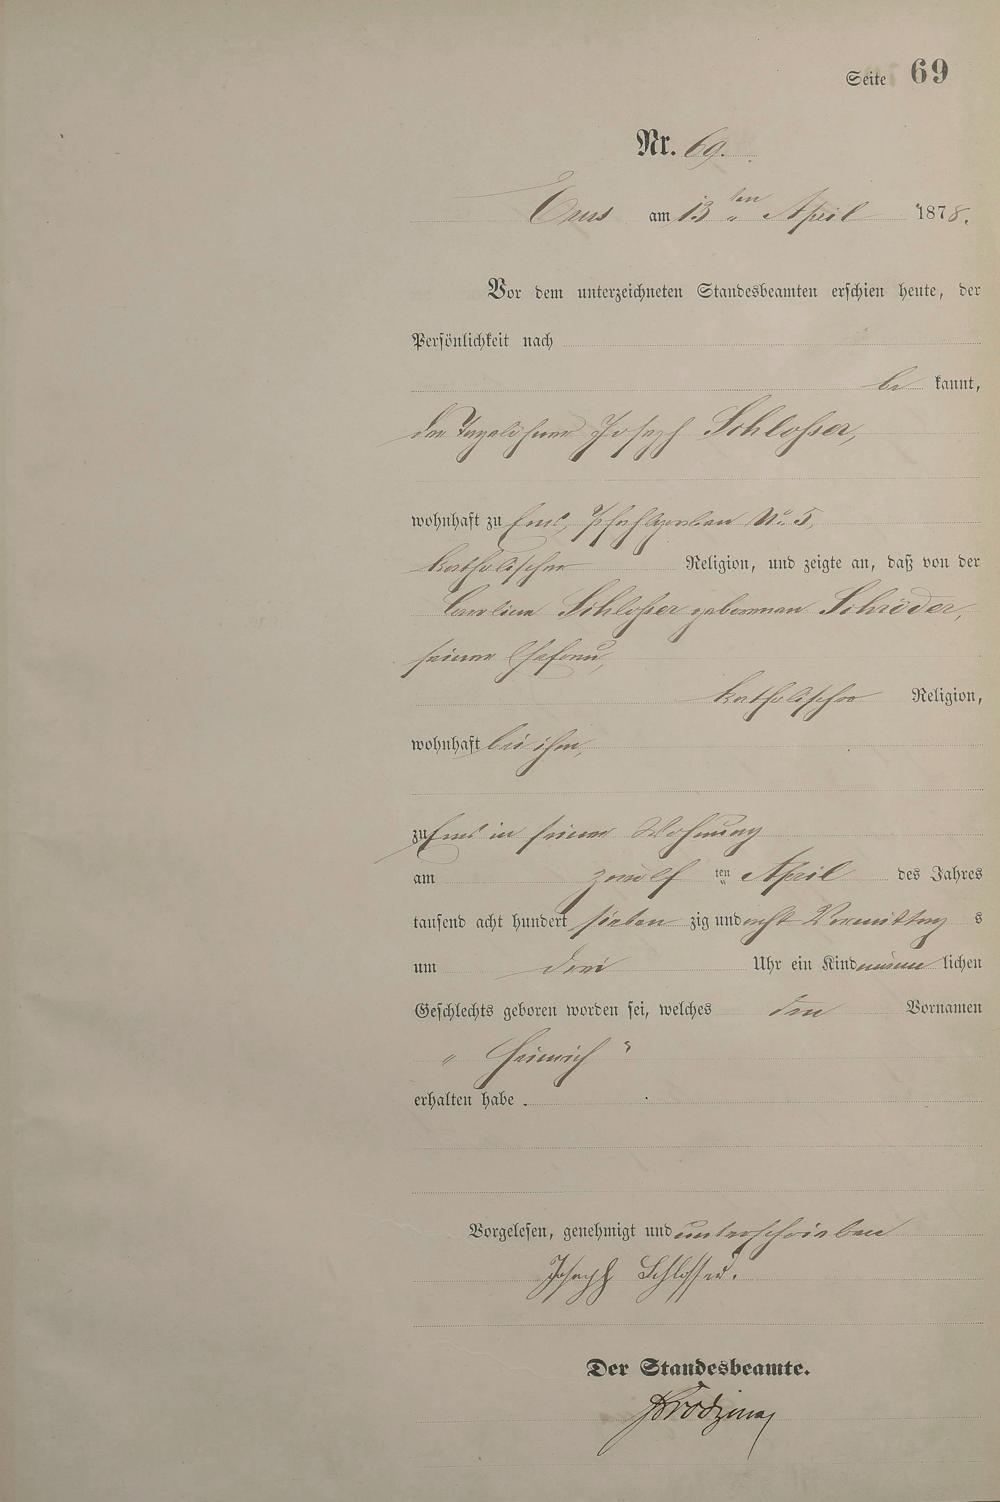 Seite 69
Nr. 69.
Ems am 13ten April 1878.
Vor dem unterzeichneten Standesbeamten erschien heute, der
Persönlichkeit nach
be kannt,
der Tagelöhner Joseph Schlosser,
wohnhaft zu Ems, Pfahlgraben No. 5,
katholischer Religion, und zeigte an, daß von der
Caroline Schlosser geborenen Schröder,
seiner Ehefrau,
katholischer Religion,
wohnhaft bei ihm,
zu Ems in seiner Wohnung
am zwölf ten April des Jahres
tausend acht hundert sieben zig und acht Vormittag s
um drei Uhr ein Kind männ lichen
Geschlechts geboren worden sei, welches den Vornamen
„ Heinrich “
erhalten habe.
Vorgelesen, genehmigt und unterschrieben
Joseph Schlosser.
Der Standesbeamte.